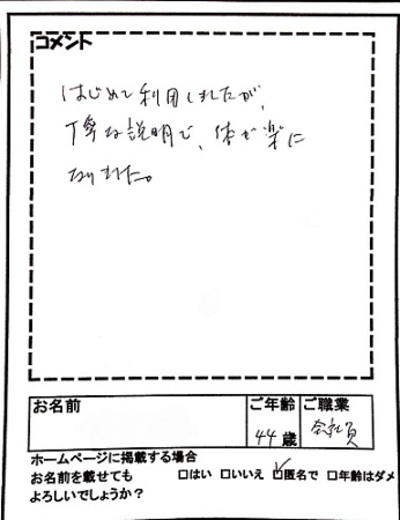 コメント
はじめて利用しましたが、
丁寧な説明で、体も楽に
なりました。
お名前
ご年齢
ご職業
44歳
会社員
ホームページに掲載する場合
お名前を載せても
よろしいでしょうか？
□はい □いいえ ☑匿名で □年齢はダメ